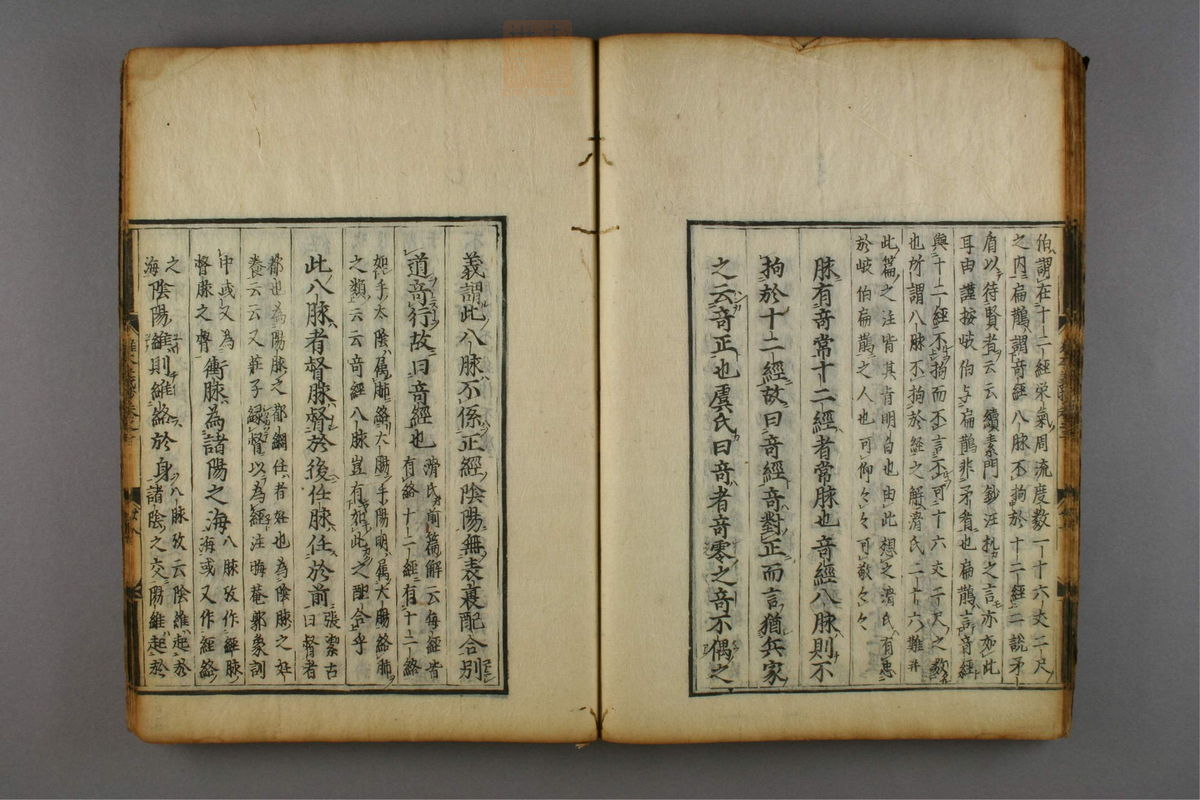 伯謂在十二經栄氣周流度数一十六丈二尺
之内扁鵲謂竒經八脉不拘於十二經二説矛
盾以待賢者云云續素問鈔汪机之言亦如此
耳由謹按岐伯与扁鵲非矛盾也扁鵲言竒經
與十二經不拘而不言不可十六丈二尺之数
也所謂八脉不拘於經之解滑氏二十六難并
此篇之注皆其肯明白也由此想之滑氏有恵
於岐伯扁鵲之人也可仰々々可敬々々
脉有竒常十二經者常脉也竒經八脉則不
拘於十二經故曰竒經竒對正而言猶兵家
之云竒正也虞氏曰竒者竒零之竒不偶之
義謂此八脉不係正經陰陽無表裏配合別
道竒行故曰竒經也滑氏前篇解云每經皆
有絡十二經有十二絡
如手太陰属肺絡大腸手陽明属大腸絡肺
之類云云竒經八脉豈有如此之配合乎
此八脉者督脉督於後任脉任於前張潔古
曰督者
都也為陽脉之都綱任者妊也為陰脉之妊
養云云又荘子緑督以為經注晦菴郭象訓
中或又為
督脉之督衝脉為諸陽之海八脉攷作經脉
海或又作經絡
之
海陰陽維則維絡於身八脉攷云陰維起於
諸陰之交陽維起於